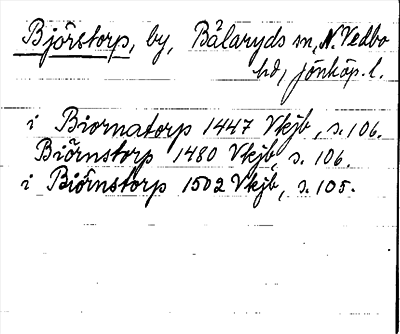 Björstorp, by, Bälaryds sn, N. Vedbo
hd, jönköp. l.
i Biornatorp 1447 Vkjb, s. 106.
Biörnstorp 1480 Vkjb, s. 106.
i Biörnstorp 1502 Vkjb, s. 105.